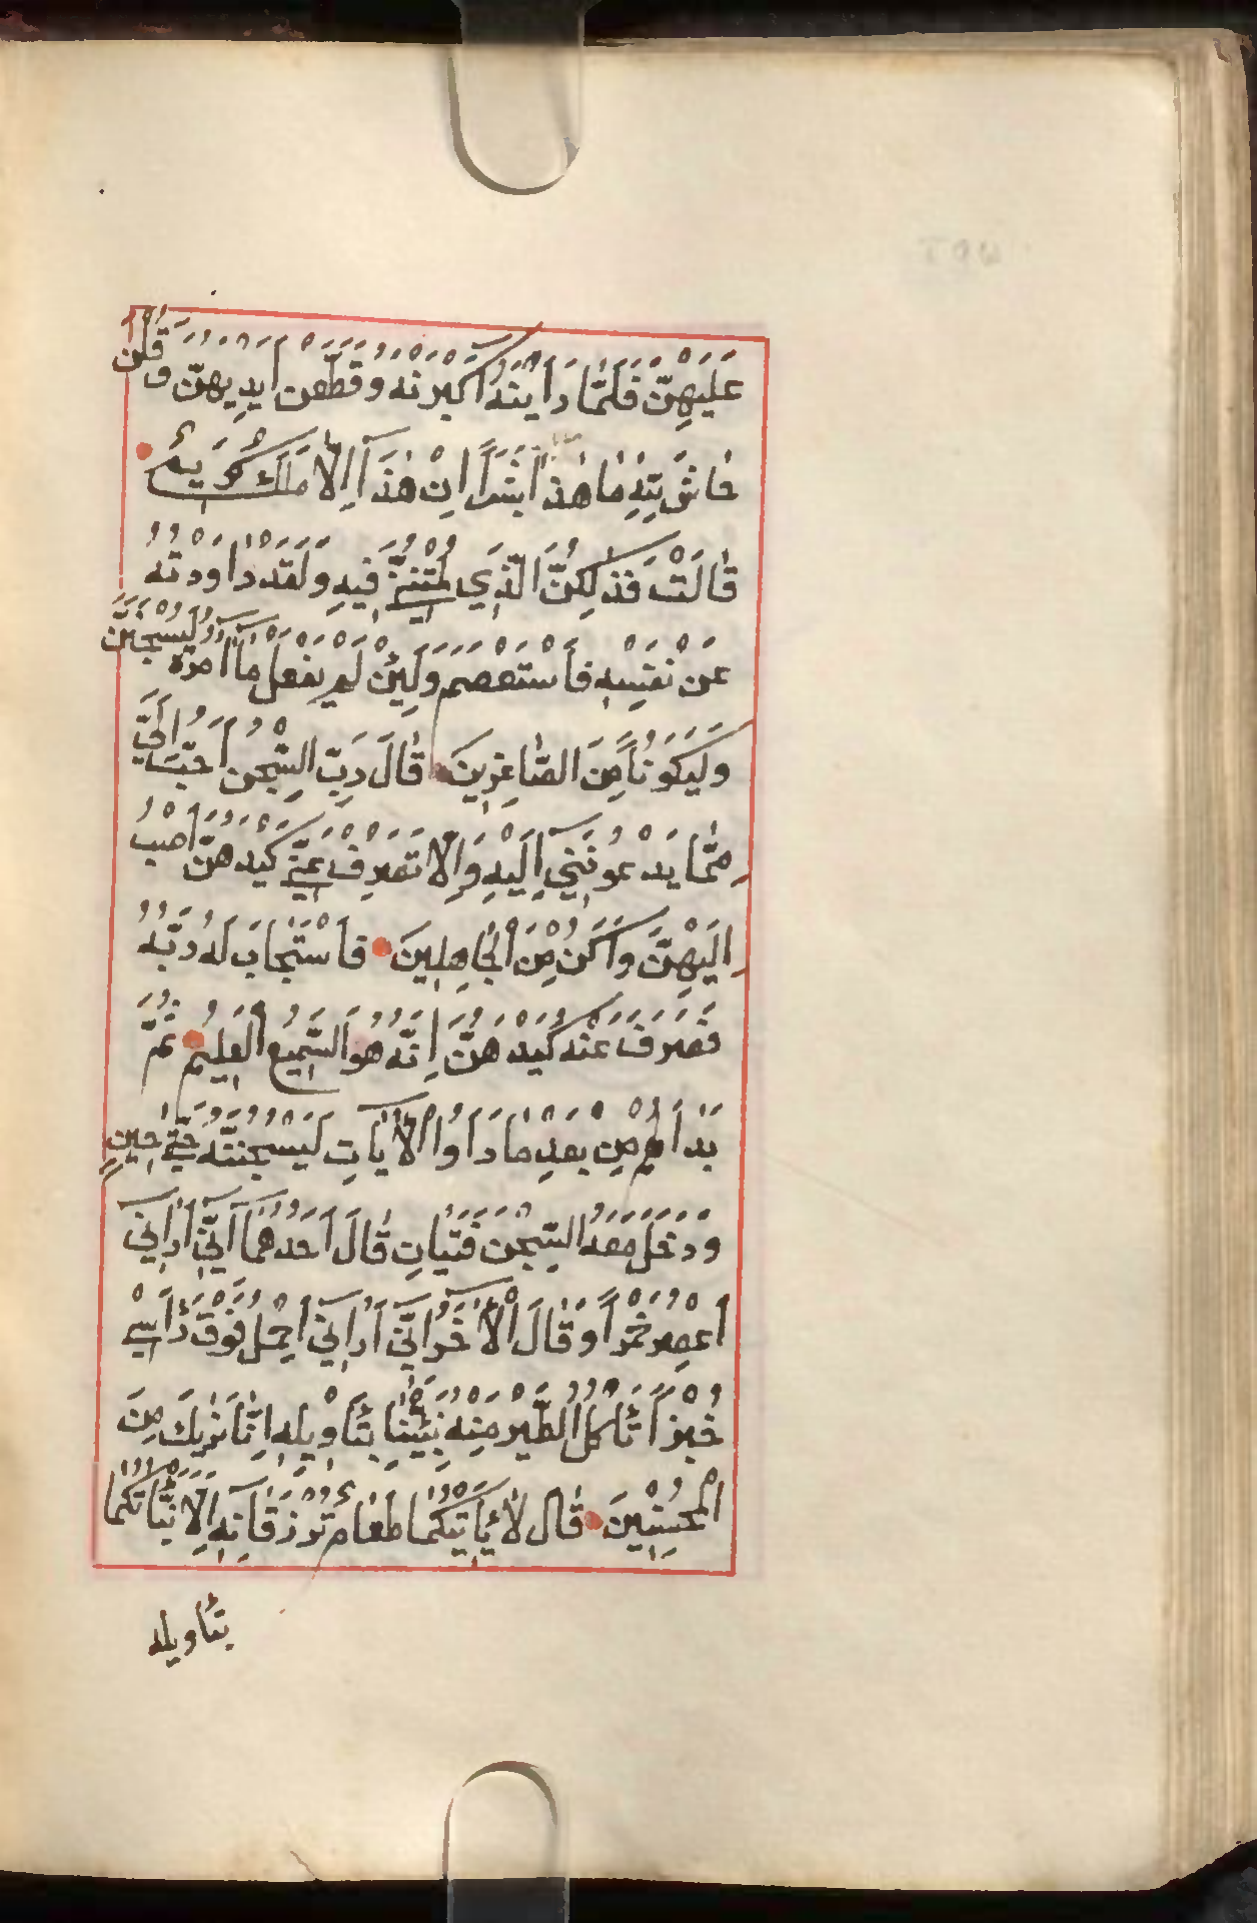 عَلَيْهِنَّ فَلَمَّا رَاَيْنَهُ اَكْبَرْنَهُ وَقَطَّعْنَ اَيْدِيَهُنَّ وَقُلْنَ
حَاشَ لِلّٰهِ مَا هٰذَا بَشَراً اِنْ هٰذَآ اِلَّا مَلَكٌ كَرِيمٌ
قَالَتْ فَذٰلِكُنَّ الَّذِي لُمْتُنَّنِي فِيهِ وَلَقَدْ رَاوَدْتُهُ
عَنْ نَفْسِهِ فَاَسْتَعْصَمَ وَلَئِنْ لَمْ يَفْعَلْ مَآ اٰمُرُهُ لَيُسْجَنَنَّ
وَلَيَكُونًا مِنَ الصَّاغِرِينَ قَالَ رَبِّ السِّجْنُ اَحَبُّ اِلَيَّ
مِمَّا يَدْعُونَنِيٓ اِلَيْهِ وَاِلَّا تَصْرِفْ عَنِّي كَيْدَهُنَّ اَصْبُ
اِلَيْهِنَّ وَاَكُنْ مِنَ الْجَاهِلِينَ فَاسْتَجَابَ لَهُ رَبُّهُ
فَصَرَفَ عَنْهُ كَيْدَهُنَّ اِنَّهُ هُوَ السَّمِيعُ الْعَلِيمُ ثُمَّ
بَدَا لَهُمْ مِنْ بَعْدِ مَا رَاَوُا الْاٰيَاتِ لَيَسْجُنُنَّهُ حَتَّى حِينٍ
وَدَخَلَ مَعَهُ السِّجْنَ فَتَيَانِ قَالَ اَحَدُهُمَآ اِنِّيٓ اَرَانِيٓ
اَعْصِرُ خَمْراً وَقَالَ الْاٰخَرُ اِنِّيٓ اَرَانِيٓ اَحْمِلُ فَوْقَ رَأْسِي
خُبْزاً تَأْكُلُ الطَّيْرُ مِنْهُ نَبِّئْنَا بِتَأْوِيلِهِ اِنَّا نَرٰيكَ مِنَ
الْمُحْسِنِينَ قَالَ لَا يَأْتِيكُمَا طَعَامٌ تُرْزَقَانِهِ اِلَّا نَبَّأْتُكُمَا
بتأويله